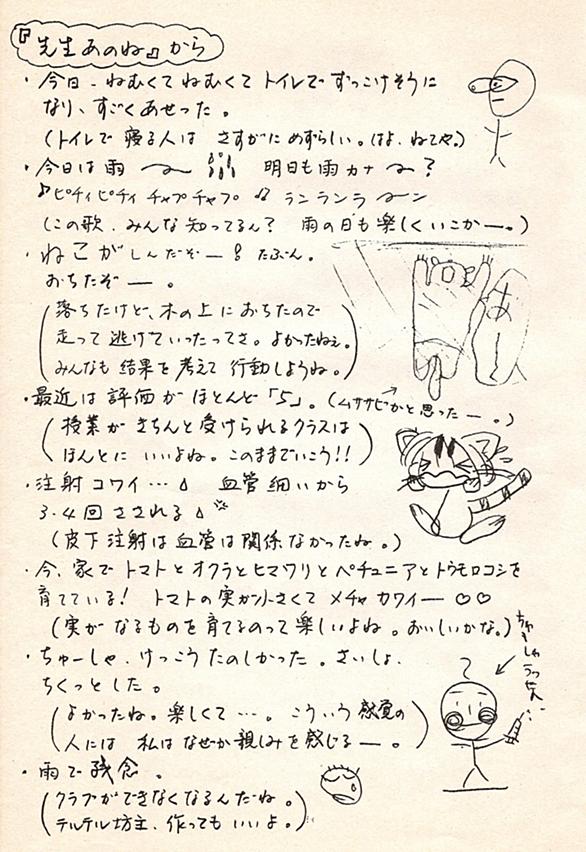 『先生あのね』から
・今日、ねむくてねむくてトイレでずっこけそうに
なり、すごくあせった。
(トイレで寝る人はさすがにめずらしい。はよ、ねてや。)
・今日は雨〜 明日も雨カナ〜?
♪ピチィピチィ チャプチャプ♫ ランランラーン
(この歌、みんな知ってるん? 雨の日も楽しくいこかー。)
・ねこがしんだぞー! たぶん。
おちたぞー。
(落ちたけど、木の上におちたので
走って逃げていったってさ。よかったねぇ。
みんなも結果を考えて行動しようね。)
・最近は評価がほとんど「5」。(ムササビかと思ったー。)
(授業がきちんと受けられるクラスは
ほんとにいいよね。このままでいこう!!)
・注射コワイ… 血管細いから
3.4回さされる
(皮下注射は血管は関係なかったね。)
・今、家でトマトとオクラとヒマワリとペチュニアとトウモロコシを
育てている! トマトの実が小さくてメチャカワイー♡♡
(実がなるものを育てるのって楽しいよね。おいしいかな。)
・ちゅーしゃ、けっこうたのしかった。さいしょ、
ちくっとした。
(よかったね。楽しくて…。こういう感覚の
人には私はなぜか親しみを感じるー。)
ちゅうしゃうつぜ、、
?
・雨で残念。
(クラブができなくなるんだね。)
(テルテル坊主、作ってもいいよ。)